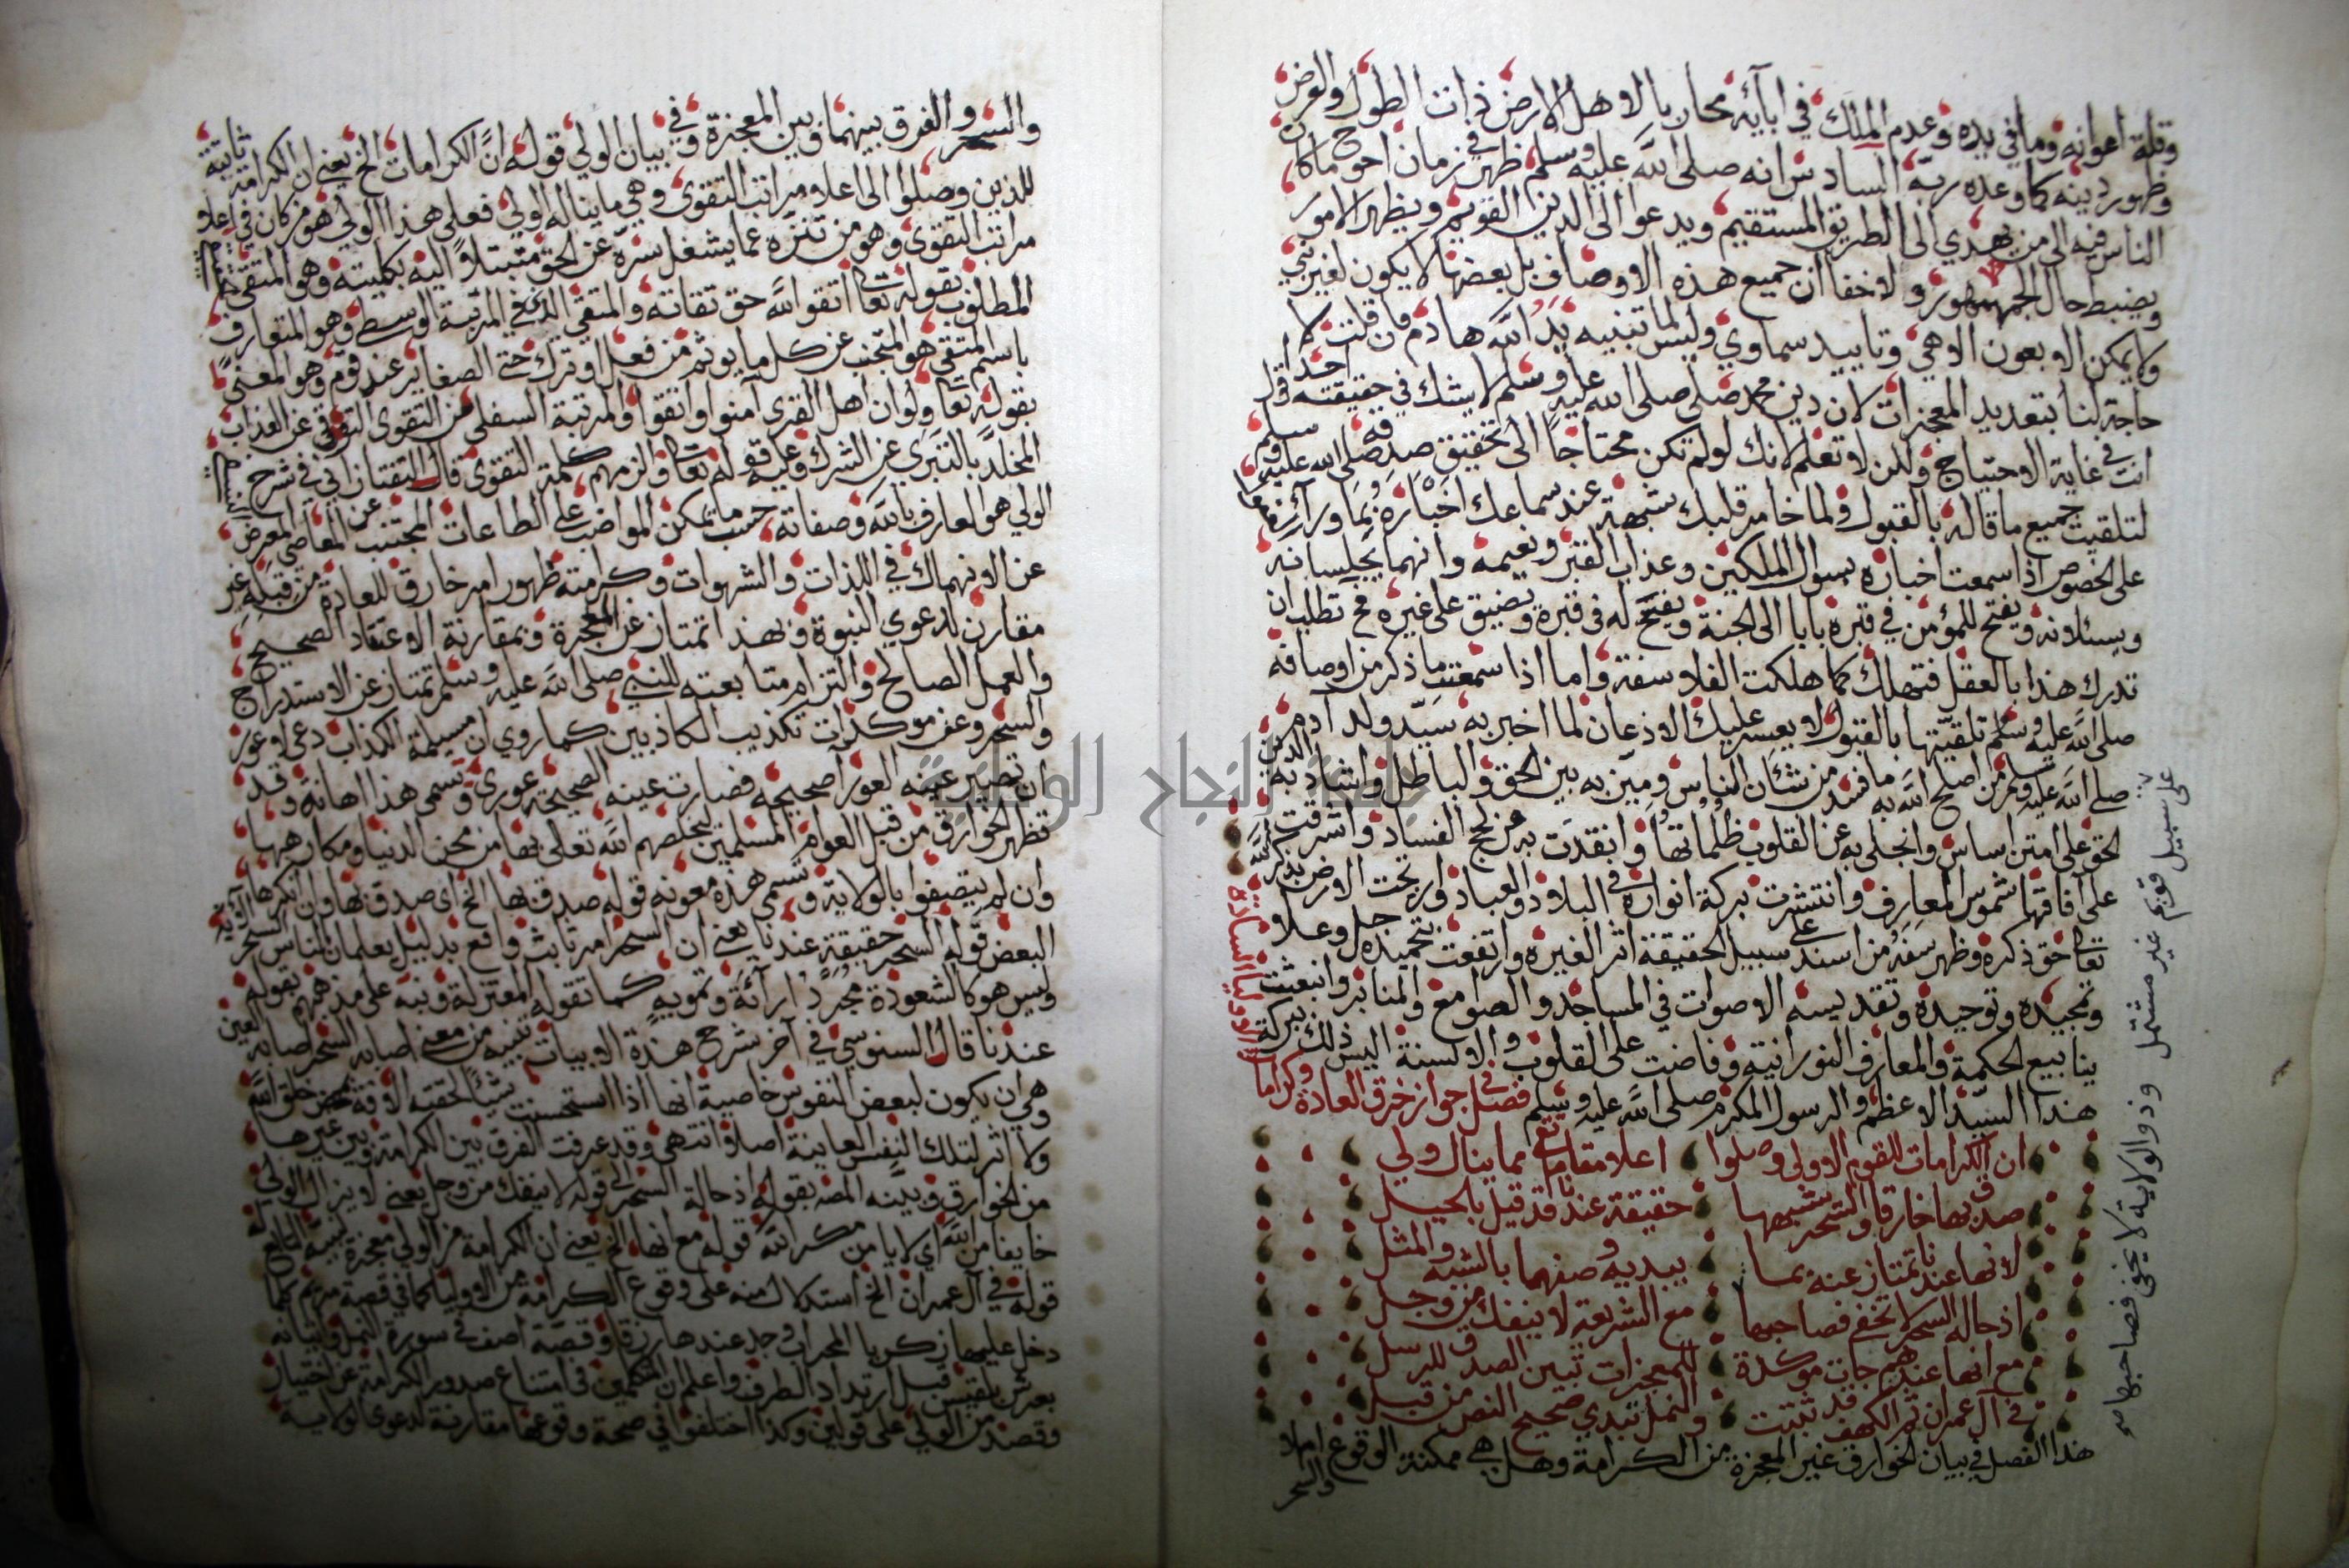 وقلة اعوانه وما في يده وعدم الملك في ابآئه محارباً لاهل الارض ذات الطول والعرض
وظهور دينه كما وعده ربه السادس انه صلى الله عليه وسلم ظهر في زمان احوج ما كان
الناس فيه الى من يهدي الى الطريق المستقيم ويدعوا الى الدين القويم ويظهر الامور
ويضبط حال الجمهور ولا خفا ان جميع هذه الاوصاف بل بعضها لا يكون لغير نبي
ولا يمكن الا بعون الاهي وتاييد سماوي وليس لما تبنيه يد الله هادم فان قلت لا
حاجة لنا بتعديد المعجزات لان دين محمد صلى الله عليه وسلم لا يشك في حقيقته احد اقل
انت في غاية الاحتياج ولكن لا تعلم لانك لو لم تكن محتاجاً الى تحقيق صدقه صلى الله عليه وسلم
لتلقيت جميع ما قاله بالقبول ولما خامر قلبك شبهة عند سماعك اخباره بما ورآء
على الخصوص اذا سمعت اخباره بسوال الملكين وعذاب القبر ونعيمه وانهما يجلسانه
ويسئلانه ويفتح للمؤمن في قبره بابا الى الجنة ويفتح له في قبره ويضيق على غيره تطلب ان
تدرك هذا بالعقل فتهلك كما هلكت الفلاسفة واما اذا سمعت ما ذكر من اوصافه
صلى الله عليه وسلم تلقيتها بالقبول لا يعسر عليك الاذعان لما اخبر به سيد ولد آدم
صلى الله عليه وسلم من اصلح الله به ما فسد من شئان الناس وميز به بين الحق والباطل وشاد به الدين
الحق على امتن اساس وانجلى به عن القلوب ظلماتها وانقذت به عن لجج الفساد واشرقت
على آفاقها شموس المعارف وانتشرت بركة انواره في البلاد والعباد وارتجت الارض بذكر الله
تعالى حق ذكره وظهر من اسند على سبيل الحقيقة اثر الغيره وارتفعت بتحميده جل وعلا
وتمجيده وتوحيده وتقديسه الاصوات في المساجد والصوامع والمنابر وانبعثت
ينابيع الحكمة والمعارف النورانية وفاضت على القلوب والالسنة اليس ذلك ببركة
هذا السيد الاعظم والرسول المكرم صلى الله عليه وسلم فصل في جواز خرق العادة وكرامات الاوليا السادة
ان الكرامات للقوم الاولى وصلوا اعلا مقام مما ينال ولي
صدق بها خارقا والسحر يشبهها حقيقة عندنا قد قيل بالحيل
لانها عندنا تمتاز عنه بما يبديه وصفهما بالشبه والمثل
اذ حالة السحر لا تخفى فصاحبها مع الشريعة لا ينفك من وجل
مع انها عندهم جات موكدة للمعجزات تبين الصدق للرسل
في آل عمران ثم الكهف قد ثبتت والنمل تبدي صحيح النص من قبل
هذا الفصل في بيان الخوارق غير المعجزة من الكرامة وهل هي ممكنة الوقوع ام لا
والسحر
على سبيل قويم غير مشتمل وذو الولاية لا يخفى فصاحبها
والسحر والفرق بينهما وبين المعجزة وفي بيان الولي قوله ان الكرامات الخ يعني ان الكرامة ثابتة
للذين وصلوا الى اعلا مراتب التقوى وهي ما يناله الولي فعلى هذا الولي هو من كان في اعلا
مراتب التقوى وهو من تنزه عما يشغل سره عن الحق متبتلاً اليه بكليته وهو المتقي
المطلوب بقوله تعالى اتقوا الله حق تقاته والمتقي الذي في المرتبة الوسطى وهو المتعارف
باسم المتقي هو المتجنب عن كل ما يوثم من فعل او ترك حتى الصغاير عند قوم وهو المعني
بقوله تعا ولو ان اهل القرى آمنوا واتقوا والمرتبة السفلى من التقوى التوقي عن العذاب
المخلد بالتبري عن الشرك وعليه قوله تعالى والزمهم كلمة التقوى قال التفتازاني في شرح
الولي هو العارف بالله وصفاته حسب ما يمكن المواضب على الطاعات المجتنب عن المعاصي المعرض
عن الانهماك في اللذات والشهوات وكرامته ظهور امر خارق للعادة من قبله غير
مقارن لدعوي النبوة وبهذا تمتاز عن المعجزة وبمقارنة الاعتقاد الصحيح
والعمل الصالح والتزام متابعته للنبي صلى الله عليه وسلم تمتاز عن الاستدراج
والسحر وعن موكدات تكذيب الكاذبين كما روي ان مسيلمة الكذاب دعى لاعور
ان تصير عينه العورآ صحيحة فصارت عينه الصحيحة عورى وتسمى هذا اهانة وقد
تظهر الخوارق من قبل العوام المسلمين ليخلصهم الله تعالى بها من محن الدنيا ومكارهها
وان لم يتصفوا بالولاية وتسمى هذه معونه قوله صدق بها الخ اى صدق بها وان انكرها
البعض قوله السحر حقيقة عندنا يعني ان السحر امر ثابت واقع بدليل يعلمان الناس السحر
وليس هو كالشعوذة مجرد ارآئة وتمويه كما تقوله المعتزلة ونبه على مذهبهم بقوله
عندنا قال السنوسي في آخر شرح هذه الابيات تنبيه من معنى اصابه السحر اصابه العين
وهي ان يكون لبعض النفوس خاصية انها اذا استحسنت شيئاً لحقته الافة بمحض خلق الله
ولا اثر لتلك النفس العاينة اصلا وانتهى وقد عرفت الفرق بين الكرامة وبين غيرها
من الخوارق وبينه المصه بقوله اذ حالة السحر الى قوله لا ينفك من وجل يعني لا يزال الولي
خايفا من الله اي لا يامن مكر الله قوله مع انها الخ يعني ان الكرامة من الولي معجزة لنبيه
قوله في آل عمران الخ استدلال منه على وقوع الكرامة من الاوليا كما في قصة مريم كلما
دخل عليها زكريا المحراب وجد عندها رزقا وقصة آصف في سورة النمل واتيانه
بعرش بلقيس قبل ارتداد الطرف واعلم ان المتكلمين في امتناع صدور الكرامة عن اختيار
وقصد من الولي على قولين وكذا اختلفوا في صحة وقوعها مقارنة لدعوى الولاية
جامعة النجاح الوطنية